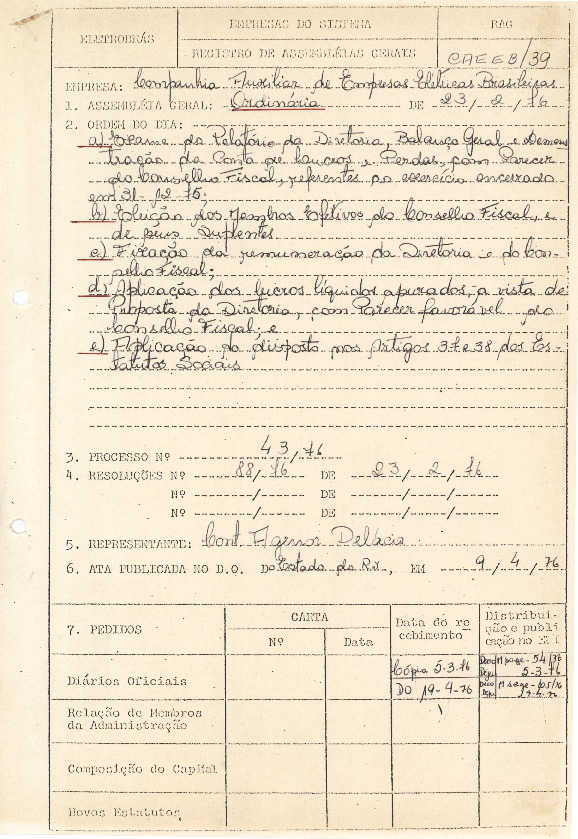 ELETROBRÁS
EMPRESAS DO SISTEMA
RAG
REGISTRO DE ASSEMBLÉIAS GERAIS
CAEEB/39
EMPRESA: Companhia Auxiliar de Empresas Elétricas Brasileiras
1. ASSEMBLÉIA GERAL: Ordinária DE 23/2/76
2. ORDEM DO DIA:
a) Exame do Relatório da Diretoria, Balanço Geral e Demons
tração da Conta de Lucros e Perdas, com Parecer
do Conselho Fiscal, referentes ao exercício encerrado
em 31-12-75;
b) Eleição dos Membros Efetivos do Conselho Fiscal, e
de seus Suplentes
c) Fixação da remuneração da Diretoria e do Con-
selho Fiscal;
d) Aplicação dos lucros líquidos apurados, à vista de
Proposta da Diretoria, com Parecer favorável do
Conselho Fiscal; e
e) Aplicação do disposto nos Artigos 37 e 38 dos Es-
tatutos Sociais
3. PROCESSO Nº 43/76
4. RESOLUÇÕES Nº 88/76 DE 23/2/76
Nº ------/------ DE ------/------/------
Nº ------/------ DE ------/------/------
5. REPRESENTANTE: Cont. Agenor Delácio
6. ATA PUBLICADA NO D.O. Do Estado do RJ, EM 9/4/76
7. PEDIDOS
CARTA
Nº
Data
Data do re
cebimento
Distribui-
ção e publi
cação no
Diários Oficiais
Cópia 5-3-76
5-3-76
DO 19-4-76
Relação de Membros
da Administração
Composição do Capital
Novos Estatutos